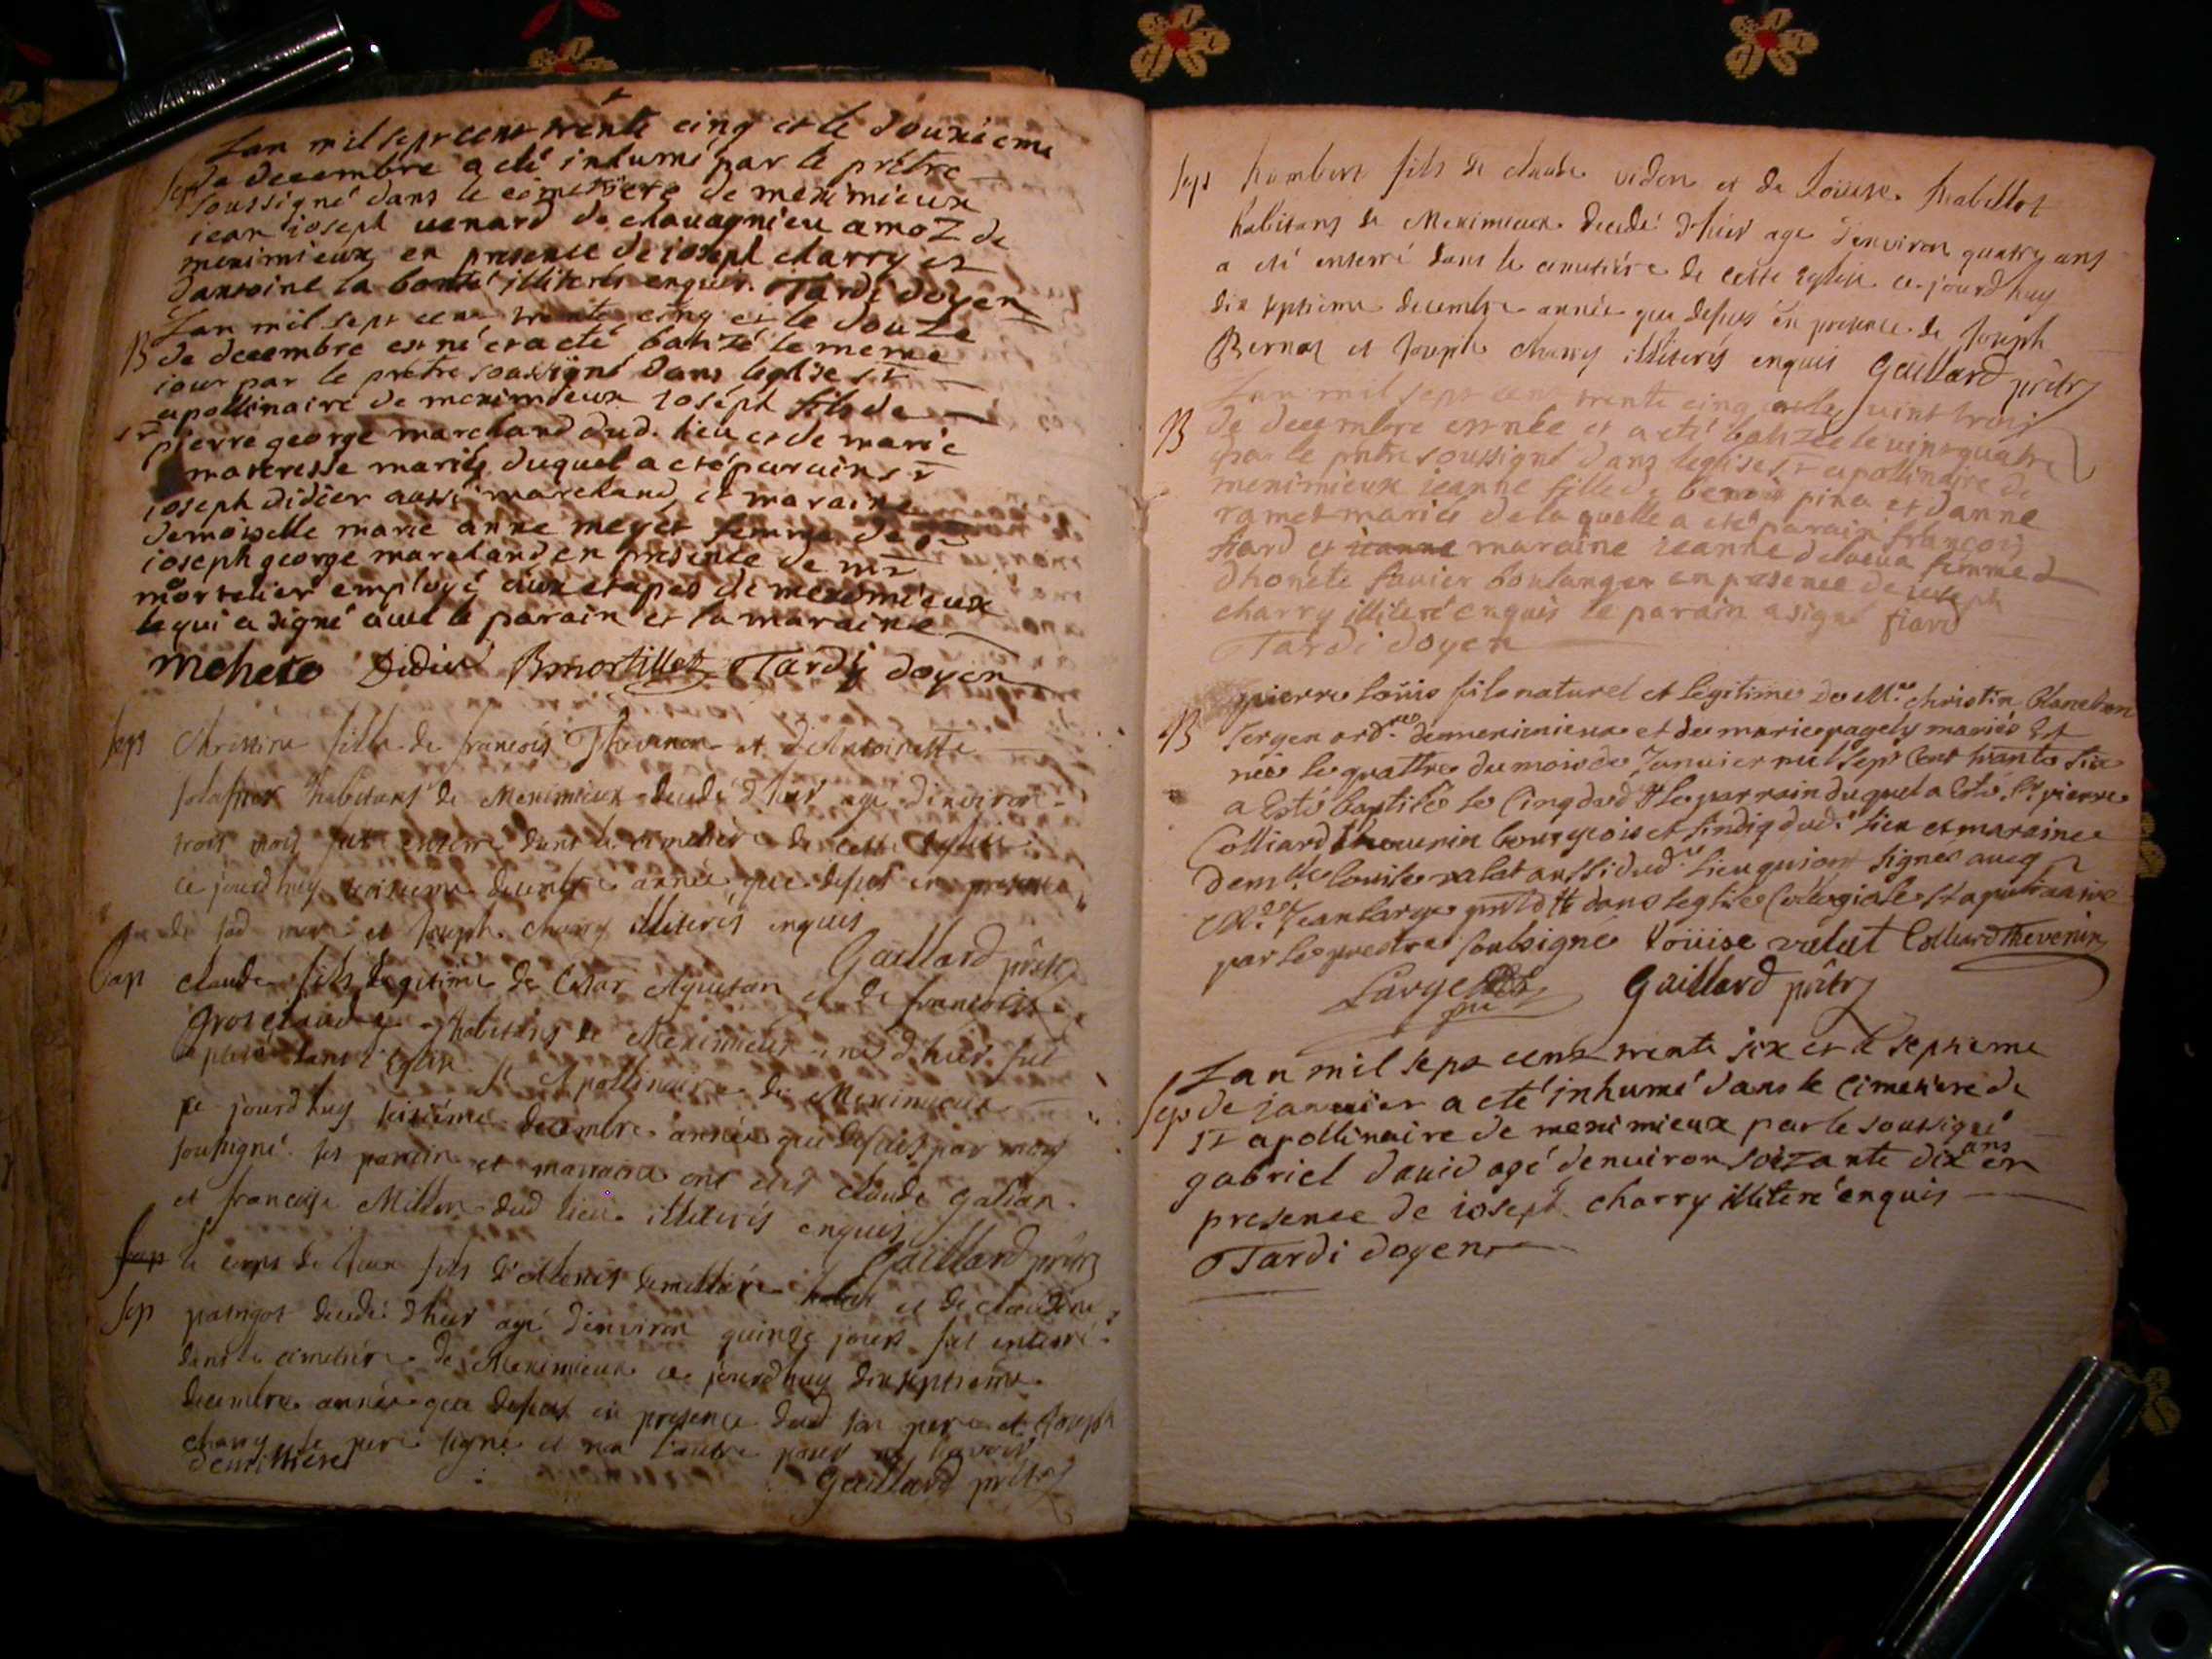 Lan mil sept cent trente cinq et le douxieme
de decembre a eté inhumé par le prêtre
Sep soussigné dans le cimetiere de meximieux
iean ioseph uenard de chauagnieu a moz de
meximieux en presence de ioseph charry et
dantoine la bonté illiterés enquis Tardi doyen
Lan mil sept cent trente cinq et le douze
B de decembre est né et a eté batizé le meme
iour par le prêtre soussigné dans leglise st
apollinaire de meximieux ioseph fils de
sr pierre george marchand dud. lieu et de marie
materesse mariés duquel a eté parain sr
ioseph didier aussi marchand et maraine
demoiselle marie anne meyet femme de sr
ioseph george marchand en presence de mr
mortelier employé aux etapes de meximieux
qui a signé auec le parain et la maraine
meheto Didier Bmortillet Tardy doyen
Sep Christine fille de francois Thevenon et d'Antoinette
habitans de Meximieux decedé d'hier age d'environ
trois mois fut enterré dans le cimetiere de cette Eglise
ce jourdhuy decembre année que dessus en presence
de sad mere et Joseph charry illiterés enquis
Gaillard prêtre
Bap claude fils legitime de Cesar et de francoise
Groselaude habitans de Meximieux né d'hier fut
baptisé dans l'Eglise St Apollinaire de Meximieux
ce jourd'huy seizième decembre année que dessus par moy
soussigné ses parrin et marraine ont etés claude galian
et francoise Millon dud lieu illiterés enquis
Gaillard prêtre
le corps de Jean fils d'Alexis demilliere et de claudine
Sep patrigot decedé d'hier agé d'environ quinze jours fut enterré
dans le cimetiére de Meximieux ce jourd'huy dix septieme
decembre année que dessus en presence dud son pere et Joseph
charry le pere signé et non l'autre pour ne scavoir
demilliere
Gaillard prêtre
Sep humbert fils de claude uidon et de Loüise
habitans de Meximieux decedé d'hier age d'environ quatre ans
a eté enterré dans le cimetiére de cette Eglise ce jourd'huy
dix septieme decembre année que dessus en presence de Joseph
Bernoz et Joseph charry illiterés enquis Gaillard prêtre
Lan mil sept cent trente cinq et le uint trois
B de decembre est née et a eté batizée le uint quatre
par le prêtre soussigné dans leglise st apollinaire de
meximieux ieanne fille de benoit pina et danne
ramet mariés de laquelle a eté parain françois
fiard et ieanne maraine ieanne femme d
dhonete fauier boulanger en presence de ioseph
charry illiteré enquis le parain a signé fiard
Tardi doyen
pierre loüis fils naturel et legitime de Mre christin blanchon
B sergen ordre de meximieux et de marie pagely mariés Est
née le quattre du mois de Januier mil sept cent trante six
a Esté baptisé le cinq dud le parrain duquel a Esté Sr pierre
Colliard theuenin bourgeois et sindiq dud lieu et maraine
demlle louise valat aussi dud lieu qui ont signés aueq
Jean large dans leglise Collegiale st apolinaire
par le prestre soubsigné Loüise valat Colliard Thevenin
Large Gaillard prêtre
Lan mil sept cent trente six et le septieme
Sep de ianuier a eté inhumé dans le cimetiere de
st apollinaire de meximieux par le soussigné
gabriel dauid agé denuiron soizante dix ans en
presence de ioseph charry illiteré enquis
Tardi doyen